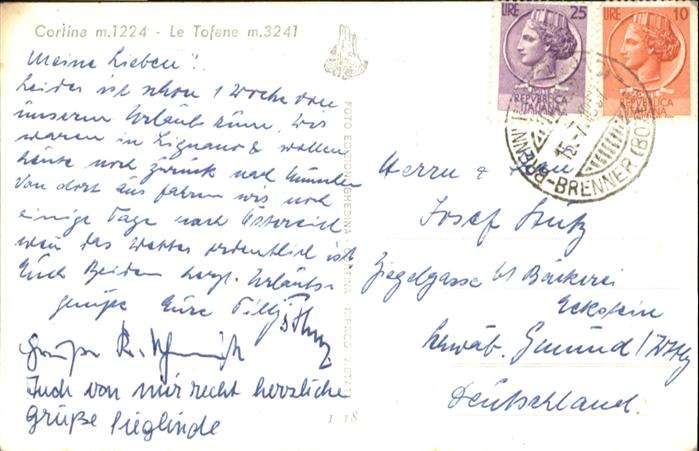 Cortina m.1224 - Le Tofane m.3241
Meine Lieben!
Leider ist schon 1 Woche von
unserem Urlaub um. Wir
waren in Lignano & wollen
heute noch zurück nach
Von dort aus fahren wir noch
einige Tage nach Österreich
wenn das Wetter ordentlich ist
Euch Beiden herzl. Urlaubs-
grüße Eure Tilly
Grüße
Auch von mir recht herzliche
grüße Sieglinde
FOTO GHEDINA - CORTINA
1 18
LIRE 25
REPVBBLICA
ITALIANA
LIRE 10
REPVBBLICA
ITALIANA
BRENNERO-BRENNER (BO)
Herrn & Frau
Josef
Ziegelgasse b/ Bäckerei
Eckstein
Schwäb. Gmünd/Wttbg
Deutschland.